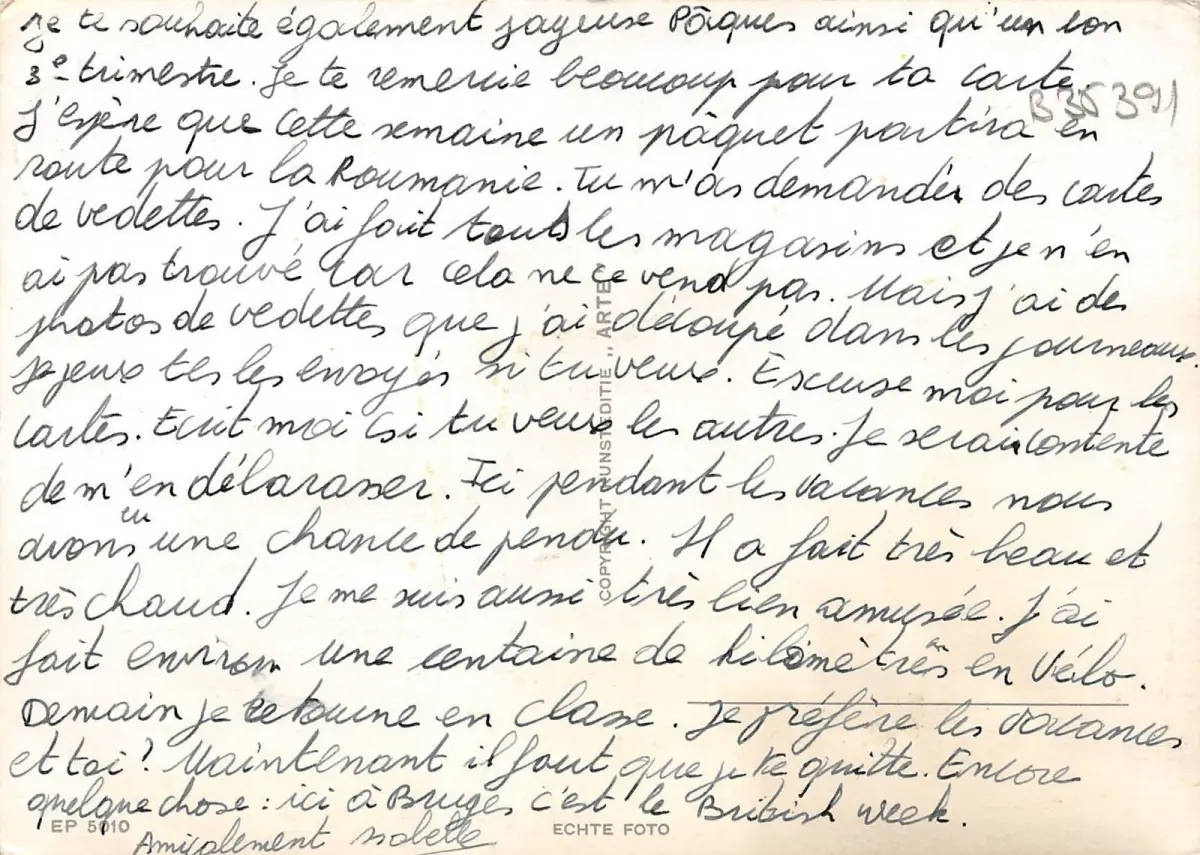 Je te souhaite également joyeuse Pâques ainsi qu'un bon
3e trimestre. Je te remercie beaucoup pour ta carte.
B 35 391
J'espère que cette semaine un pâquet partira en
route pour la Roumanie. Tu m'as demander des cartes
de vedettes. J'ai fait touts les magasins et je n'en
ai pas trouvé car cela ne ce vend pas. Mais j'ai des
photos de vedettes que j'ai découpé dans les journeaux.
Je jeux tes les envoyés si tu veux. Excuse moi pour les
cartes. Ecrit moi si tu veux les autres. Je serai contente
de m'en délarasser. Ici pendant les vacances nous
avons eu une chance de pendu. Il a fait très beau et
très chaud. Je me suis aussi très bien amusée. J'ai
fait environ une centaine de kilomètres en vélo.
Demain je retourne en classe. Je préfère les vacances
et toi? Maintenant il faut que je te quitte. Encore
quelque chose : ici à Bruges c'est le British week.
Amicalement Isabelle
EP 5010
ECHTE FOTO
COPYRIGHT KUNSTEDITIE „ARTE"